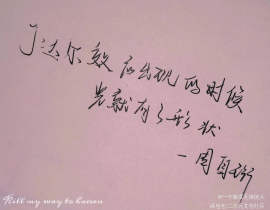 丁达尔效应出现的时候
光就有了形状
一周自珩
Kill my way to heaven